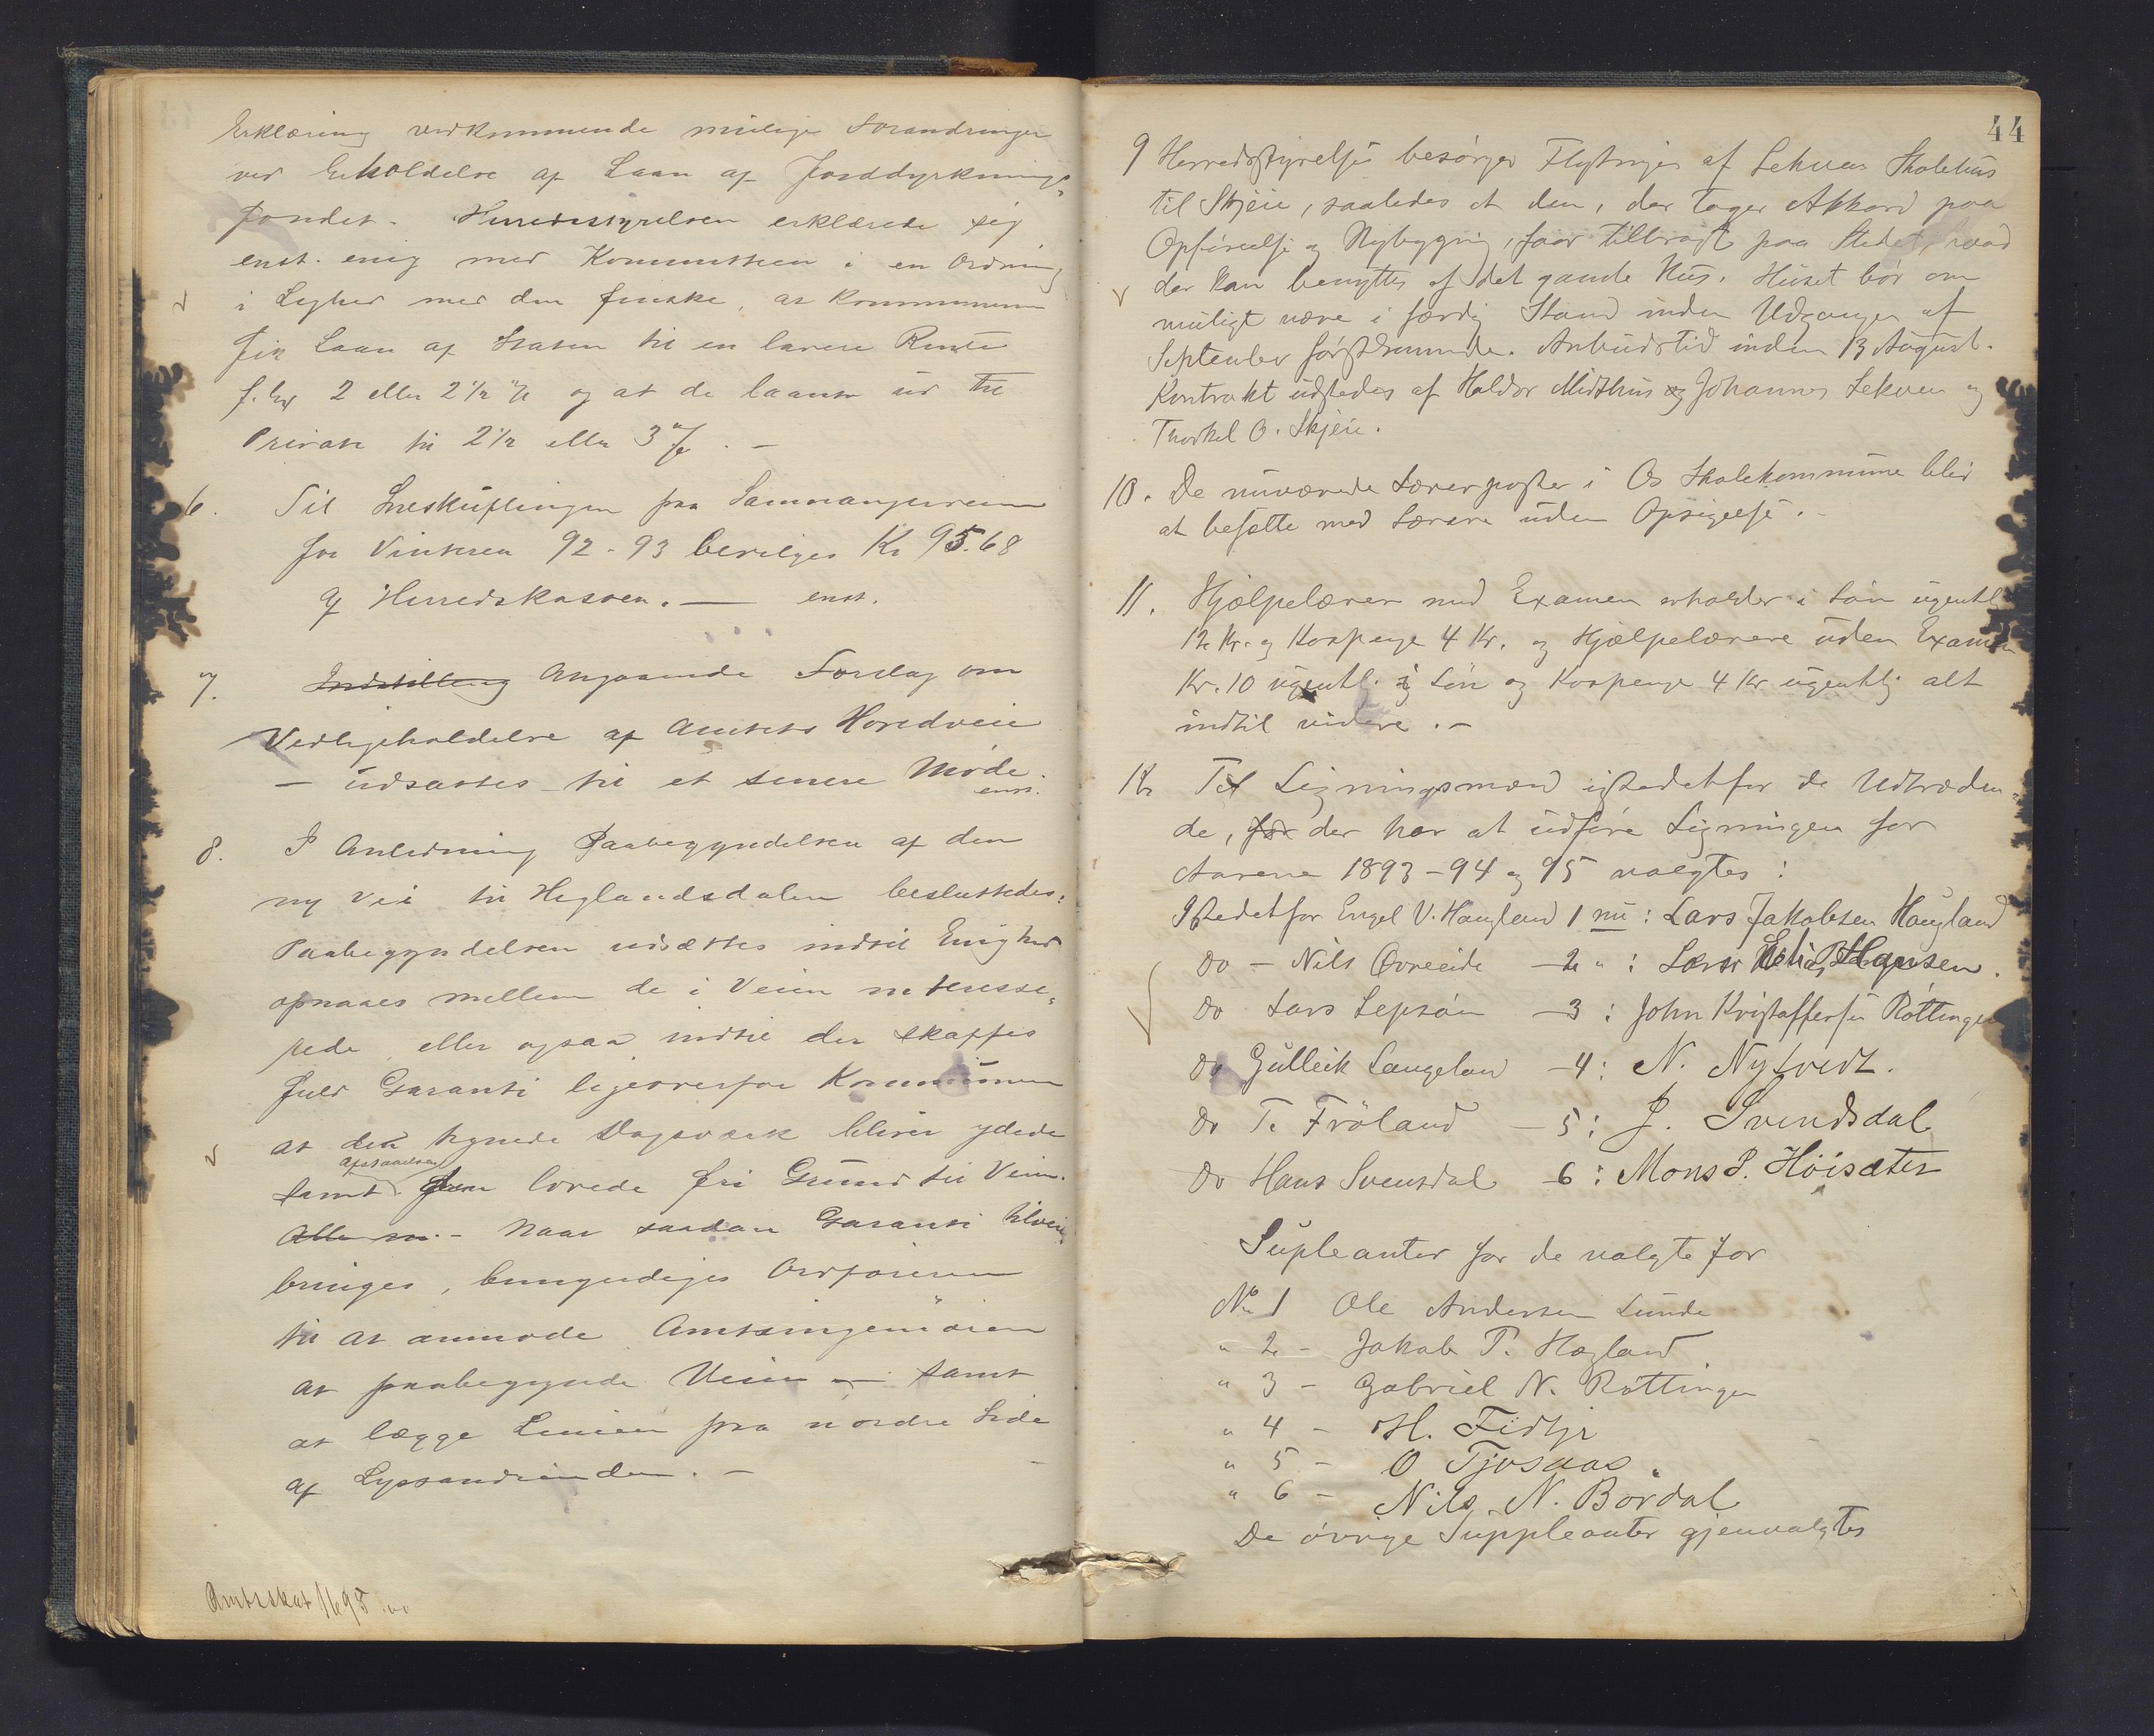 Erklæring vedkommende mulige Forandringer
ved Erholdelse af Laan af Jorddyrknings-
fondet. Herredsstyrelsen erklærede sig
enst. enig med Kommissionen i en Ordning
i Lighed med den finske, at Kommunerne
fik Laan af Staten til en lavere Rente
f. Ex 2 eller 2 1/2 % og at de laante ud til
Private til 2 1/2 eller 3 %. —
6. Til Sneskuflingen paa Samnangerveien
for Vinteren 92-93 bevilges Kr 95.68
af Herredskassen. — enst.
7. Indstilling Angaaende Forslag om
Vedligeholdelse af Amtets Hovedveie
— udsattes til et senere Møde.
enst.
8. I Anledning Paabegyndelsen af den
ny Vei til Heglandsdalen besluttedes:
Paabegyndelsen udsættes indtil Enighed
opnaaes mellem de i Veien interesse-
rede, eller ogsaa indtil der skaffes
fuld Garanti ligeoverfor Kommunen
at den tegnede Dagsværk bliver ydede
afstaaelse
samt lovede fri Grund til Veien.
Naar saadan Garanti tilveie-
bringes, bemyndiges Ordføreren
til at anmode Amtsingeniøren
at paabegynde Veien samt
at lægge Linien paa nordre Side
af
Amtsskat 1695.00
44
9 Herredsstyrelsen besørger Flytningen af Lekven Skolehus
til Skjeie, saaledes at den, der tager Akkord paa
Opførelse og Nybygning, faar tilbragt paa Stedet, hvad
der kan benyttes af det gamle Hus. Huset bør om
muligt være i færdig Stand inden Udgangen af
September førstkommende. Anbudstid inden 13 August.
Kontrakt udstedes af Haldor Midthus og Johannes Lekven og
Thorkel O. Skjeie.
10. De nuværende Lærerposter i Os Skolekommune blir
at besætte med Lærere uden Opsigelse. -
11. Hjælpelærer med Examen erholder i Løn ugentl
12 Kr. og Kospenge 4 Kr. og Hjælpelærere uden Examen
Kr. 10 ugentl. i Løn og Kospenge 4 Kr ugentlig alt
indtil videre. -
12 Til Ligningsmænd istedetfor de Udtræden-
de, for der har at udføre Ligningen for
Aarene 1893-94 og 95 valgtes:
Istedetfor Engel V. Haugland 1 nu: Lars Jakobsen Haugland
Do - Nils Øvreeide - 2 " : Hansen.
Do Lars Lepsøen - 3 : John Kristoffersen Røttingen
Do Gulleik Langeland - 4 : N. Nytvedt.
Do T. Frøland - 5 : J. Svendsdal
Do Hans Svensdal - 6 : Mons P. Høisæter
Supleanter for de valgte for
No 1 Ole Andersen Lunde
" 2 - Jakob T. Hegland
" 3 - Gabriel N. Røttingen
" 4 - H. Tidtjr
" 5 - O Tjosaas.
" 6 - Nils N. Bördal
De øvrige Suppleanter gjenvalgtes